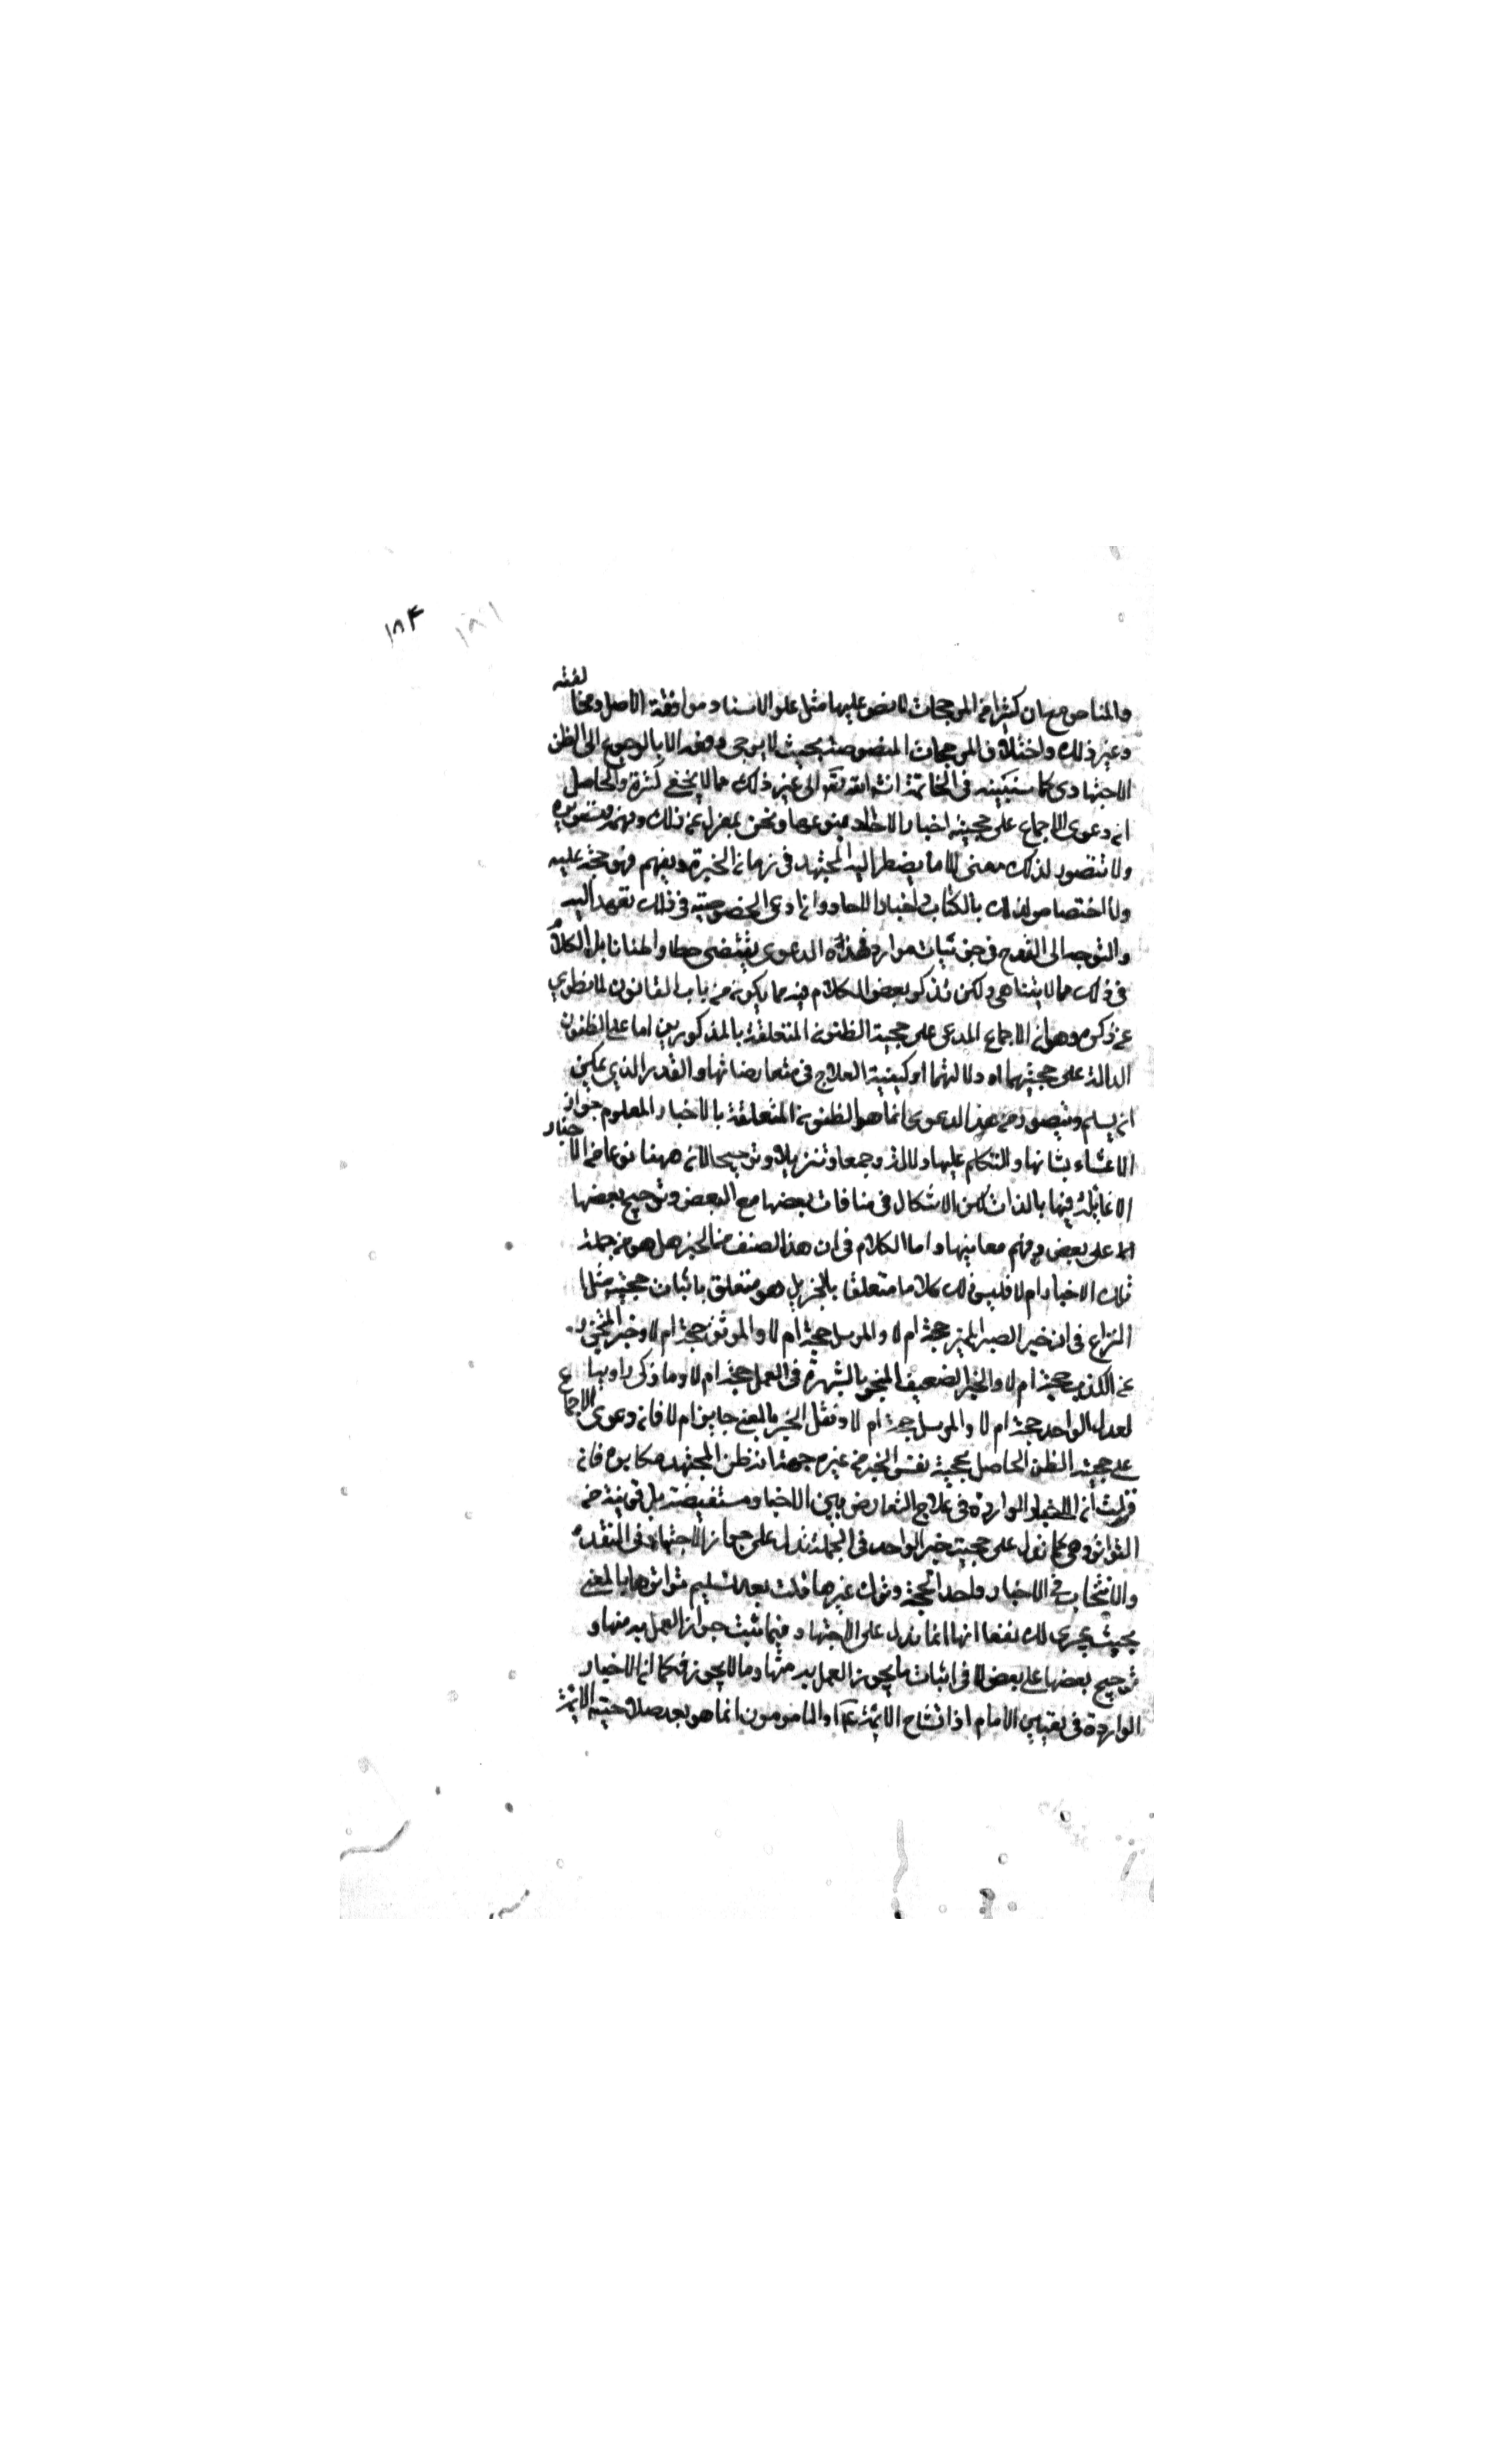 ١٨٤ ١٨١
والمناص مع ان كثيرا من المرجحات لا نص عليها مثل علو الاسناد و موافقة الاصل و مخالفته
و غير ذلك و اختلاف المرجحات المنصوصة بحيث لا يرجى دفعه الا بالرجوع الى الظن
الاجتهادى كما سنبينه فى الخاتمة انشاء الله تعه الى غير ذلك مما لا يخفى كثرة والحاصل
ان دعوى الاجماع على حجية اخبار الاحاد بنوعها و نحن بمعزل عن ذلك
ولا نتصور لذلك معنى الا ما يضطر اليه المجتهد فى زمان الحيرة و يفهم فهو حجة عليه
ولا اختصاص لذلك بالكتاب و اخبار الاحاد و ان ادعى الخصوصية فى ذلك
والتوجه الى القدح فى جزئيات موارد هذه الدعوى يقتضى بل الكلام
فى ذلك مما لا يتناهى ولكن نذكر بعض الكلام فيه مما يكون من باب القانون لما نطوى
عن ذكره و هو ان الاجماع المدعى على حجية الظنون المتعلقة بالمذكورين اما على الظنون
الدالة على حجيتهما او دلالتهما او كيفية العلاج فى متعارضاتها والقدر الذي يمكن
ان يسلم و يتصور من هذه الدعوى انما هو الظنون المتعلقة بالاخبار المعلوم جواز
الاعتناء بشانها والتكلم عليها دلالة و جمعا و تنزيلا و ترجيحا لان ههنا نوعا من الاخبار
لا غائلة فيها بالذات لكن الاشكال فى منافات بعضها مع البعض و ترجيح بعضها
على بعض و فهم معانيها و اما الكلام فى ان هذا الصنف من الخبر هل هو من جملة
تلك الاخبار ام لا فليس ذلك كلاما متعلقا بالخبر بل هو متعلق باثبات حجيته مثل
النزاع فى ان خبر الصبى المميز حجة ام لا والمرسل حجة ام لا والموثق حجة ام لا و خبر المتحرز
عن الكذب حجة ام لا والخبر الضعيف المنجبر بالشهرة فى العمل حجة ام لا و ما زكى راويها
العدل الواحد حجة ام لا والمرسل حجة ام لا و نقل الخبر بالمعنى جايز ام لا فان دعوى الاجماع
على حجية الظن الحاصل بحجية نفس الخبر من غير جهة انه ظن المجتهد مكابرة فان
قلت ان الاخبار الواردة فى علاج التعارض بين الاخبار مستفيضة بل قريبة من
التواتر و هى كما تدل على حجية خبر الواحد فى الجملة تدل على جواز الاجتهاد فى
والانتخاب فى الاخبار و اخذ الحجة و ترك غيرها قلت بعد تسليم تواترها بالمعنى
بحيث يجرى لك نفعا انها انما تدل على الاجتهاد فيما ثبت جواز العمل به منها و
ترجيح بعضها على بعض لا فى اثبات ما يجوز العمل به منها و ما لا يجوز فكما ان الاخبار
الواردة فى تعيين الامام اذا تشاح الائمة او المامومون انما هو بعد صلاحية الائمة